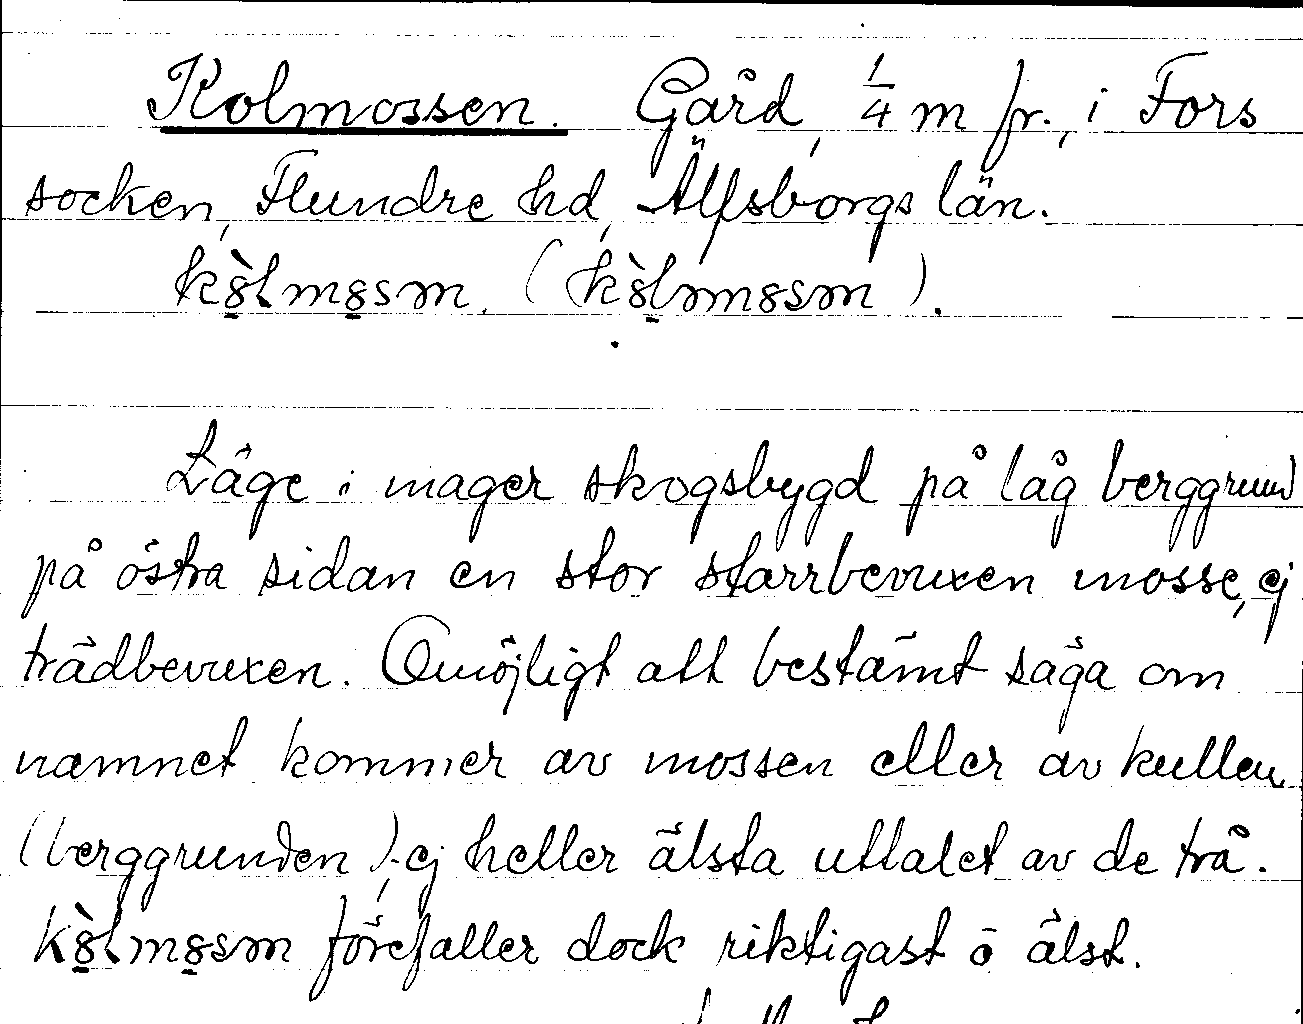 Kolmossen. Gård, 1/4 m fr., i Fors
socken, Flundre hd, Älfsborgs län.
Läge i mager skogsbygd på låg berggrund
på östra sidan en stor starrbevuxen mosse, ej
trädbevuxen. Omöjligt att bestämt säga om
namnet kommer av mossen eller av kullen
(berggrunden), ej heller älsta uttalet av de trå.
förefaller dock riktigast o älst.